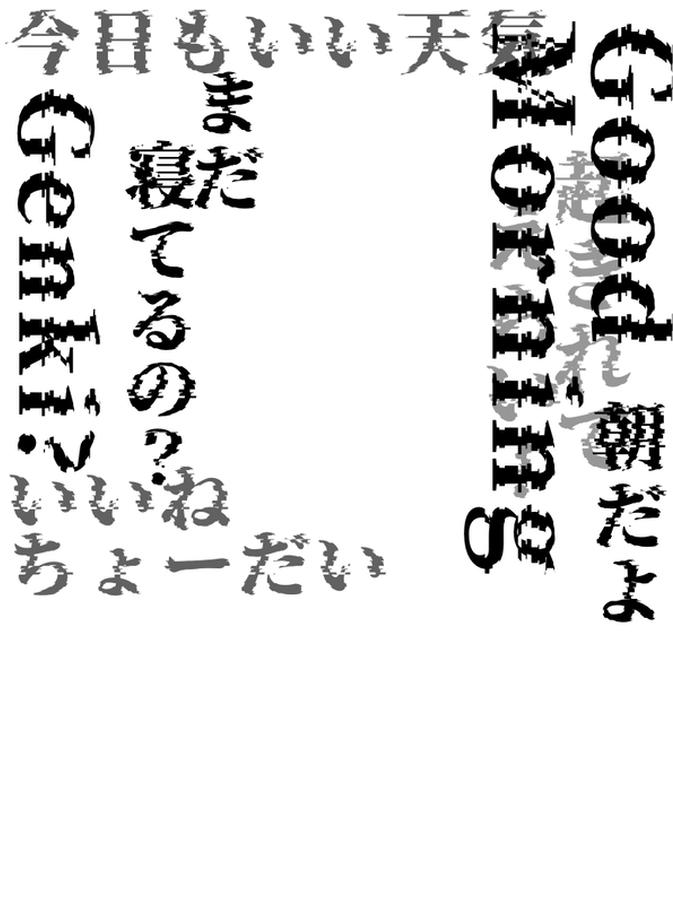 今日もいい天気
Good
Morning
朝だよ
起きれて
まだ
寝てるの？
Genki?
いいね
ちょーだい